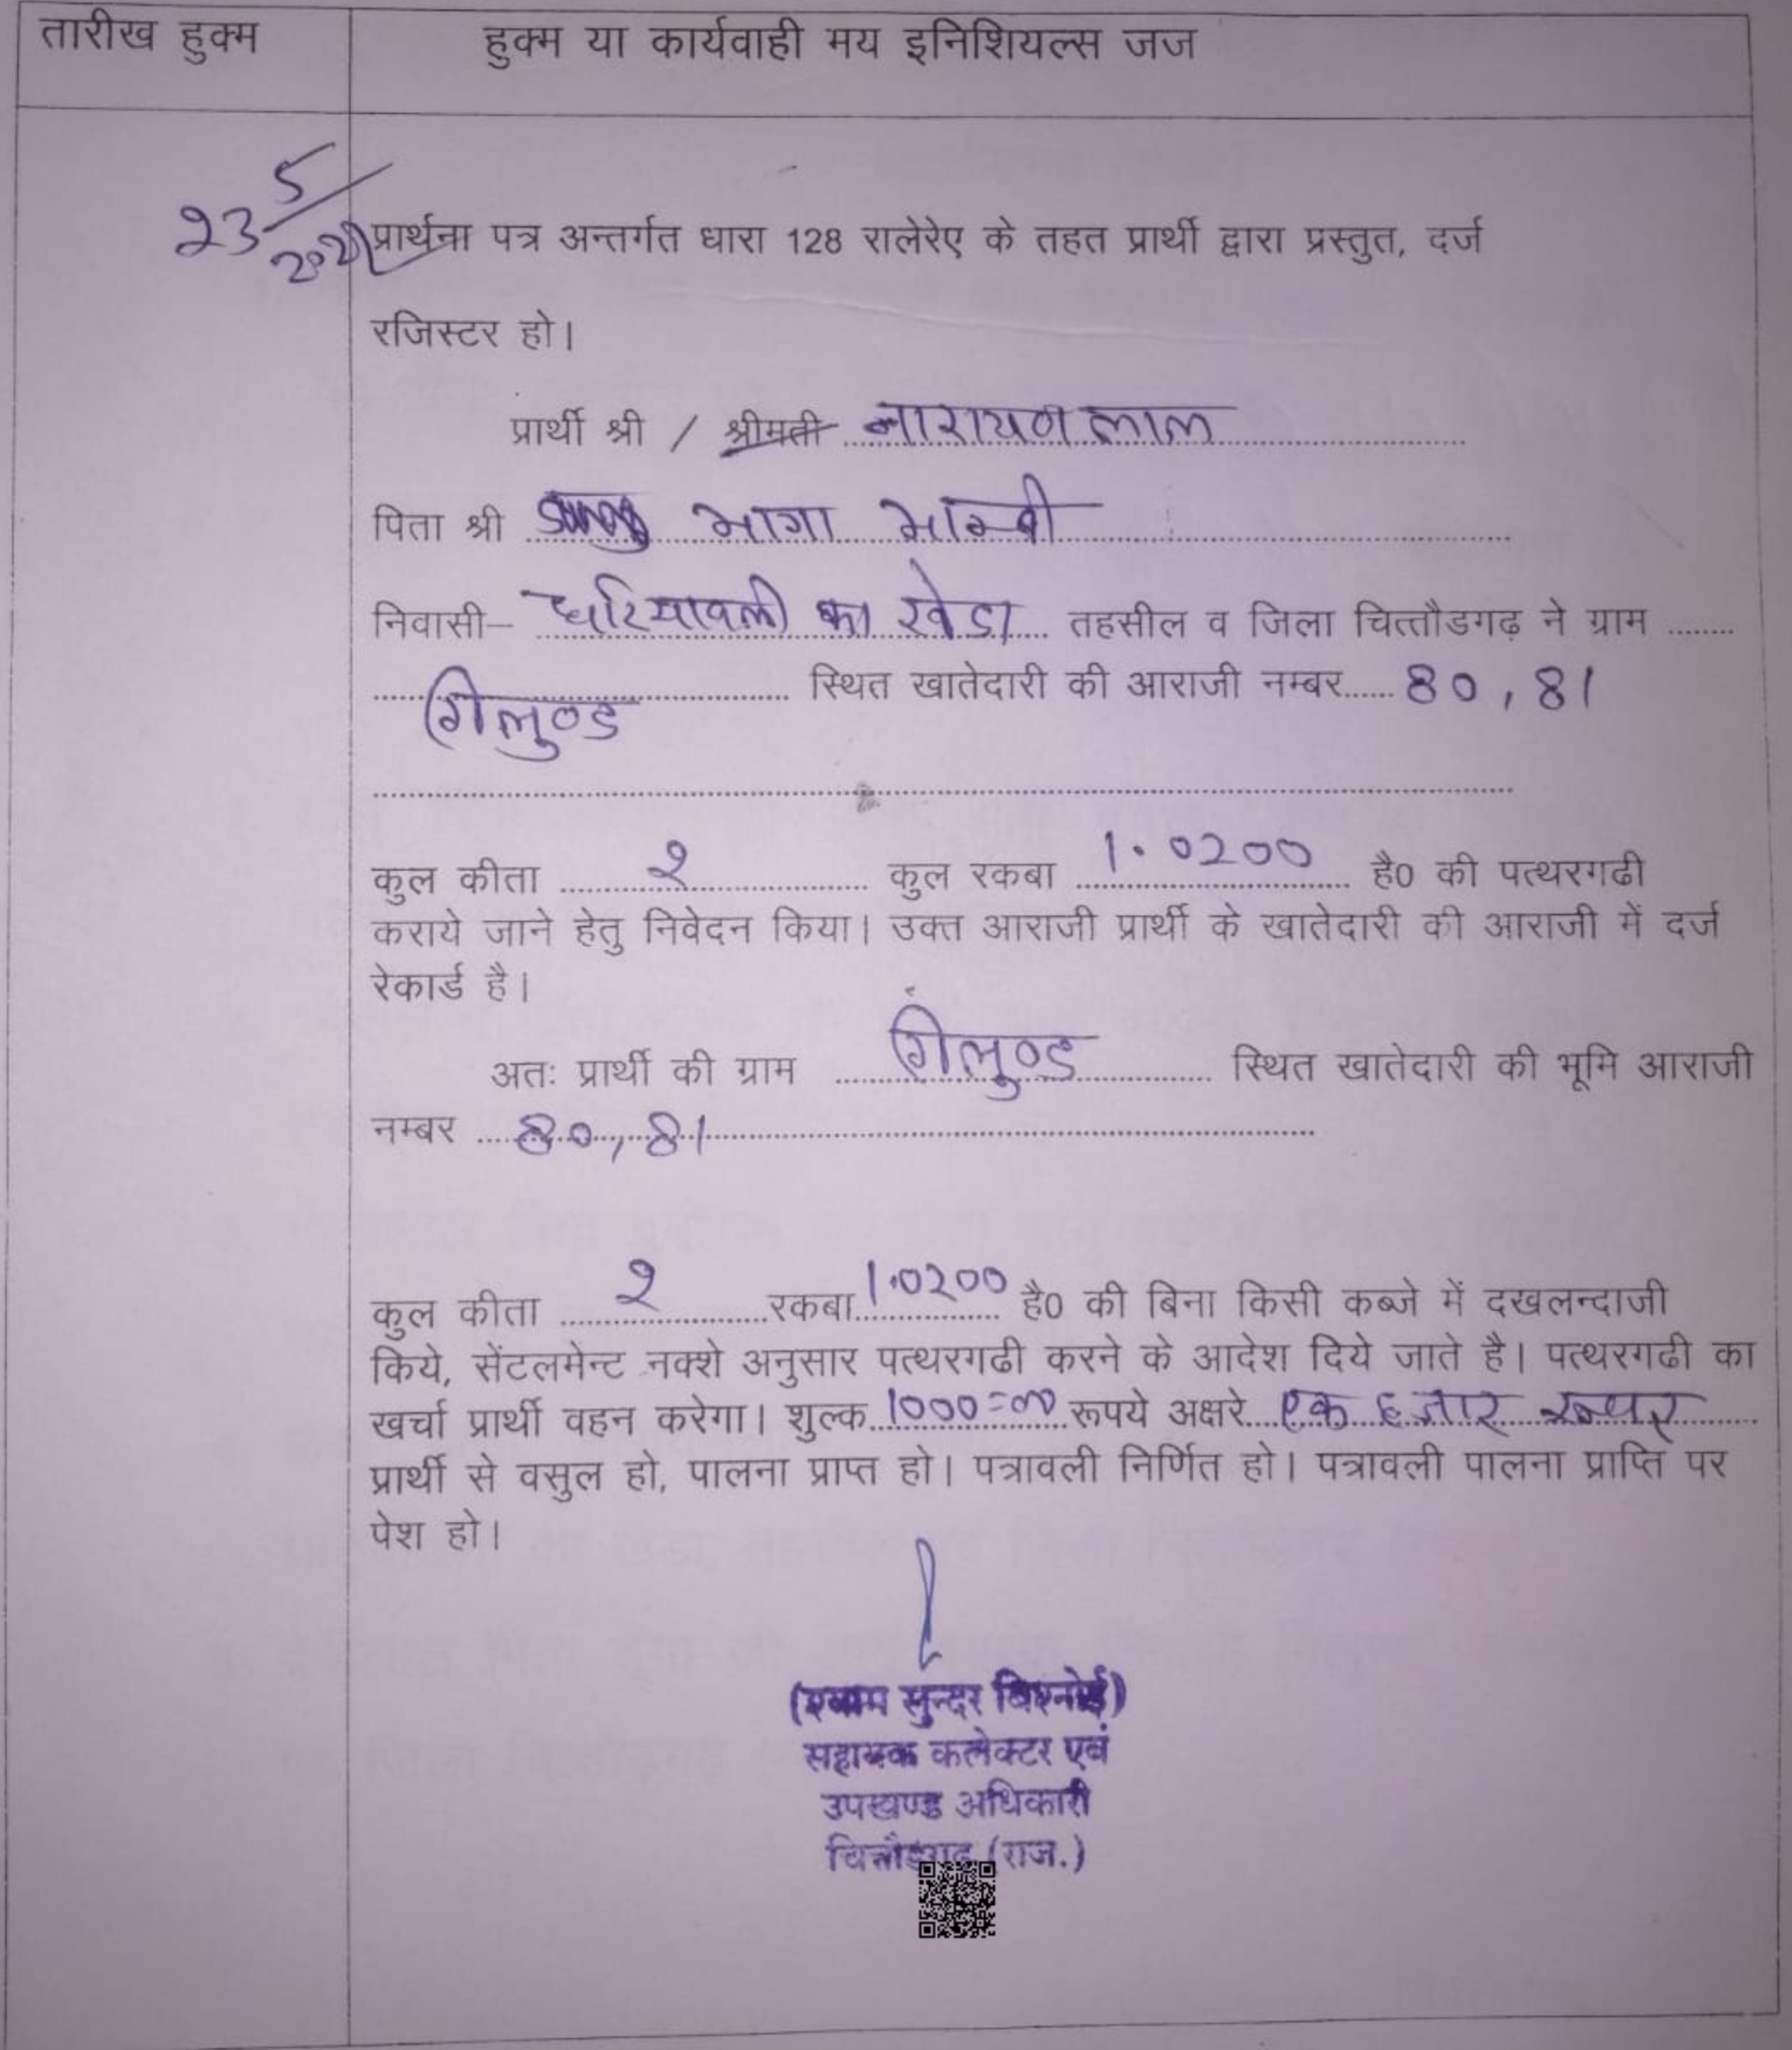 तारीख हुक्म
हुक्म या कार्यवाही मय इनिशियल्स जज
23 5
प्रार्थना पत्र अन्तर्गत धारा 128 रालेरेए के तहत प्रार्थी द्वारा प्रस्तुत, दर्ज
रजिस्टर हो।
प्रार्थी श्री / श्रीमती नारायण लाल
पिता श्री भागा भाम्बी
निवासी– धरियावली का खेडा तहसील व जिला चित्तौडगढ़ ने ग्राम ........
................ स्थित खातेदारी की आराजी नम्बर...... 80, 81
गिलुण्ड
कुल कीता 2 कुल रकबा 1.0200 है0 की पत्थरगढी
कराये जाने हेतु निवेदन किया। उक्त आराजी प्रार्थी के खातेदारी की आराजी में दर्ज
रेकार्ड है।
अतः प्रार्थी की ग्राम गिलुण्ड स्थित खातेदारी की भूमि आराजी
नम्बर 80, 81
कुल कीता 2 रकबा 1.0200 है0 की बिना किसी कब्जे में दखलन्दाजी
किये, सेंटलमेन्ट नक्शे अनुसार पत्थरगढी करने के आदेश दिये जाते है। पत्थरगढी का
खर्चा प्रार्थी वहन करेगा। शुल्क 1000=00 रूपये अक्षरे एक हजार रूपए
प्रार्थी से वसुल हो, पालना प्राप्त हो। पत्रावली निर्णित हो। पत्रावली पालना प्राप्ति पर
पेश हो।
(श्याम सुन्दर बिश्नोई)
सहायक कलेक्टर एवं
उपखण्ड अधिकारी
चित्तौडगढ (राज.)